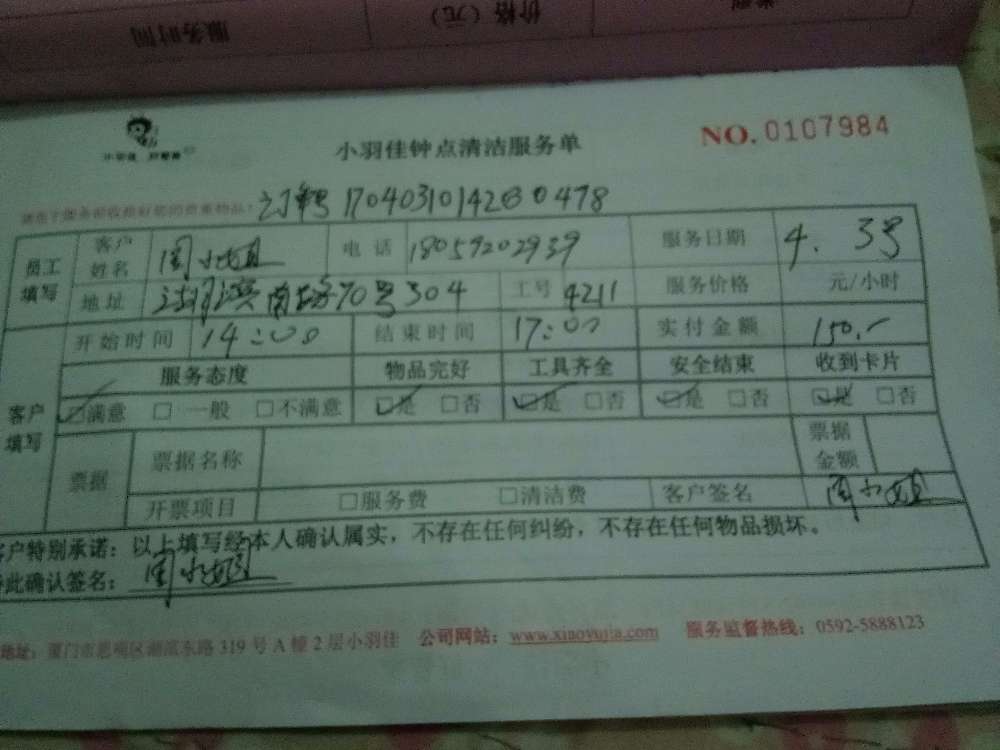 服务时间 价格（元） 类别
小羽佳钟点清洁服务单 NO. 0107984
订单号 17040310142830478
员工填写 客户姓名 周小姐 电话 18059202939 服务日期 4. 3号
地址 湖滨南路70号304 工号 4211 服务价格 元/小时
开始时间 14:00 结束时间 17:00 实付金额 150.-
客户填写 服务态度 物品完好 工具齐全 安全结束 收到卡片
☑满意 □一般 □不满意 ☑是 □否 ☑是 □否 ☑是 □否 ☑是 □否
票据 票据名称 票据金额
开票项目 □服务费 □清洁费 客户签名 周小姐
客户特别承诺：以上填写经本人确认属实，不存在任何纠纷，不存在任何物品损坏。
特此确认签名：周小姐
地址：厦门市思明区湖滨东路 319 号 A 幢 2 层小羽佳 公司网站：www.xiaoyujia.com 服务监督热线：0592-5888123